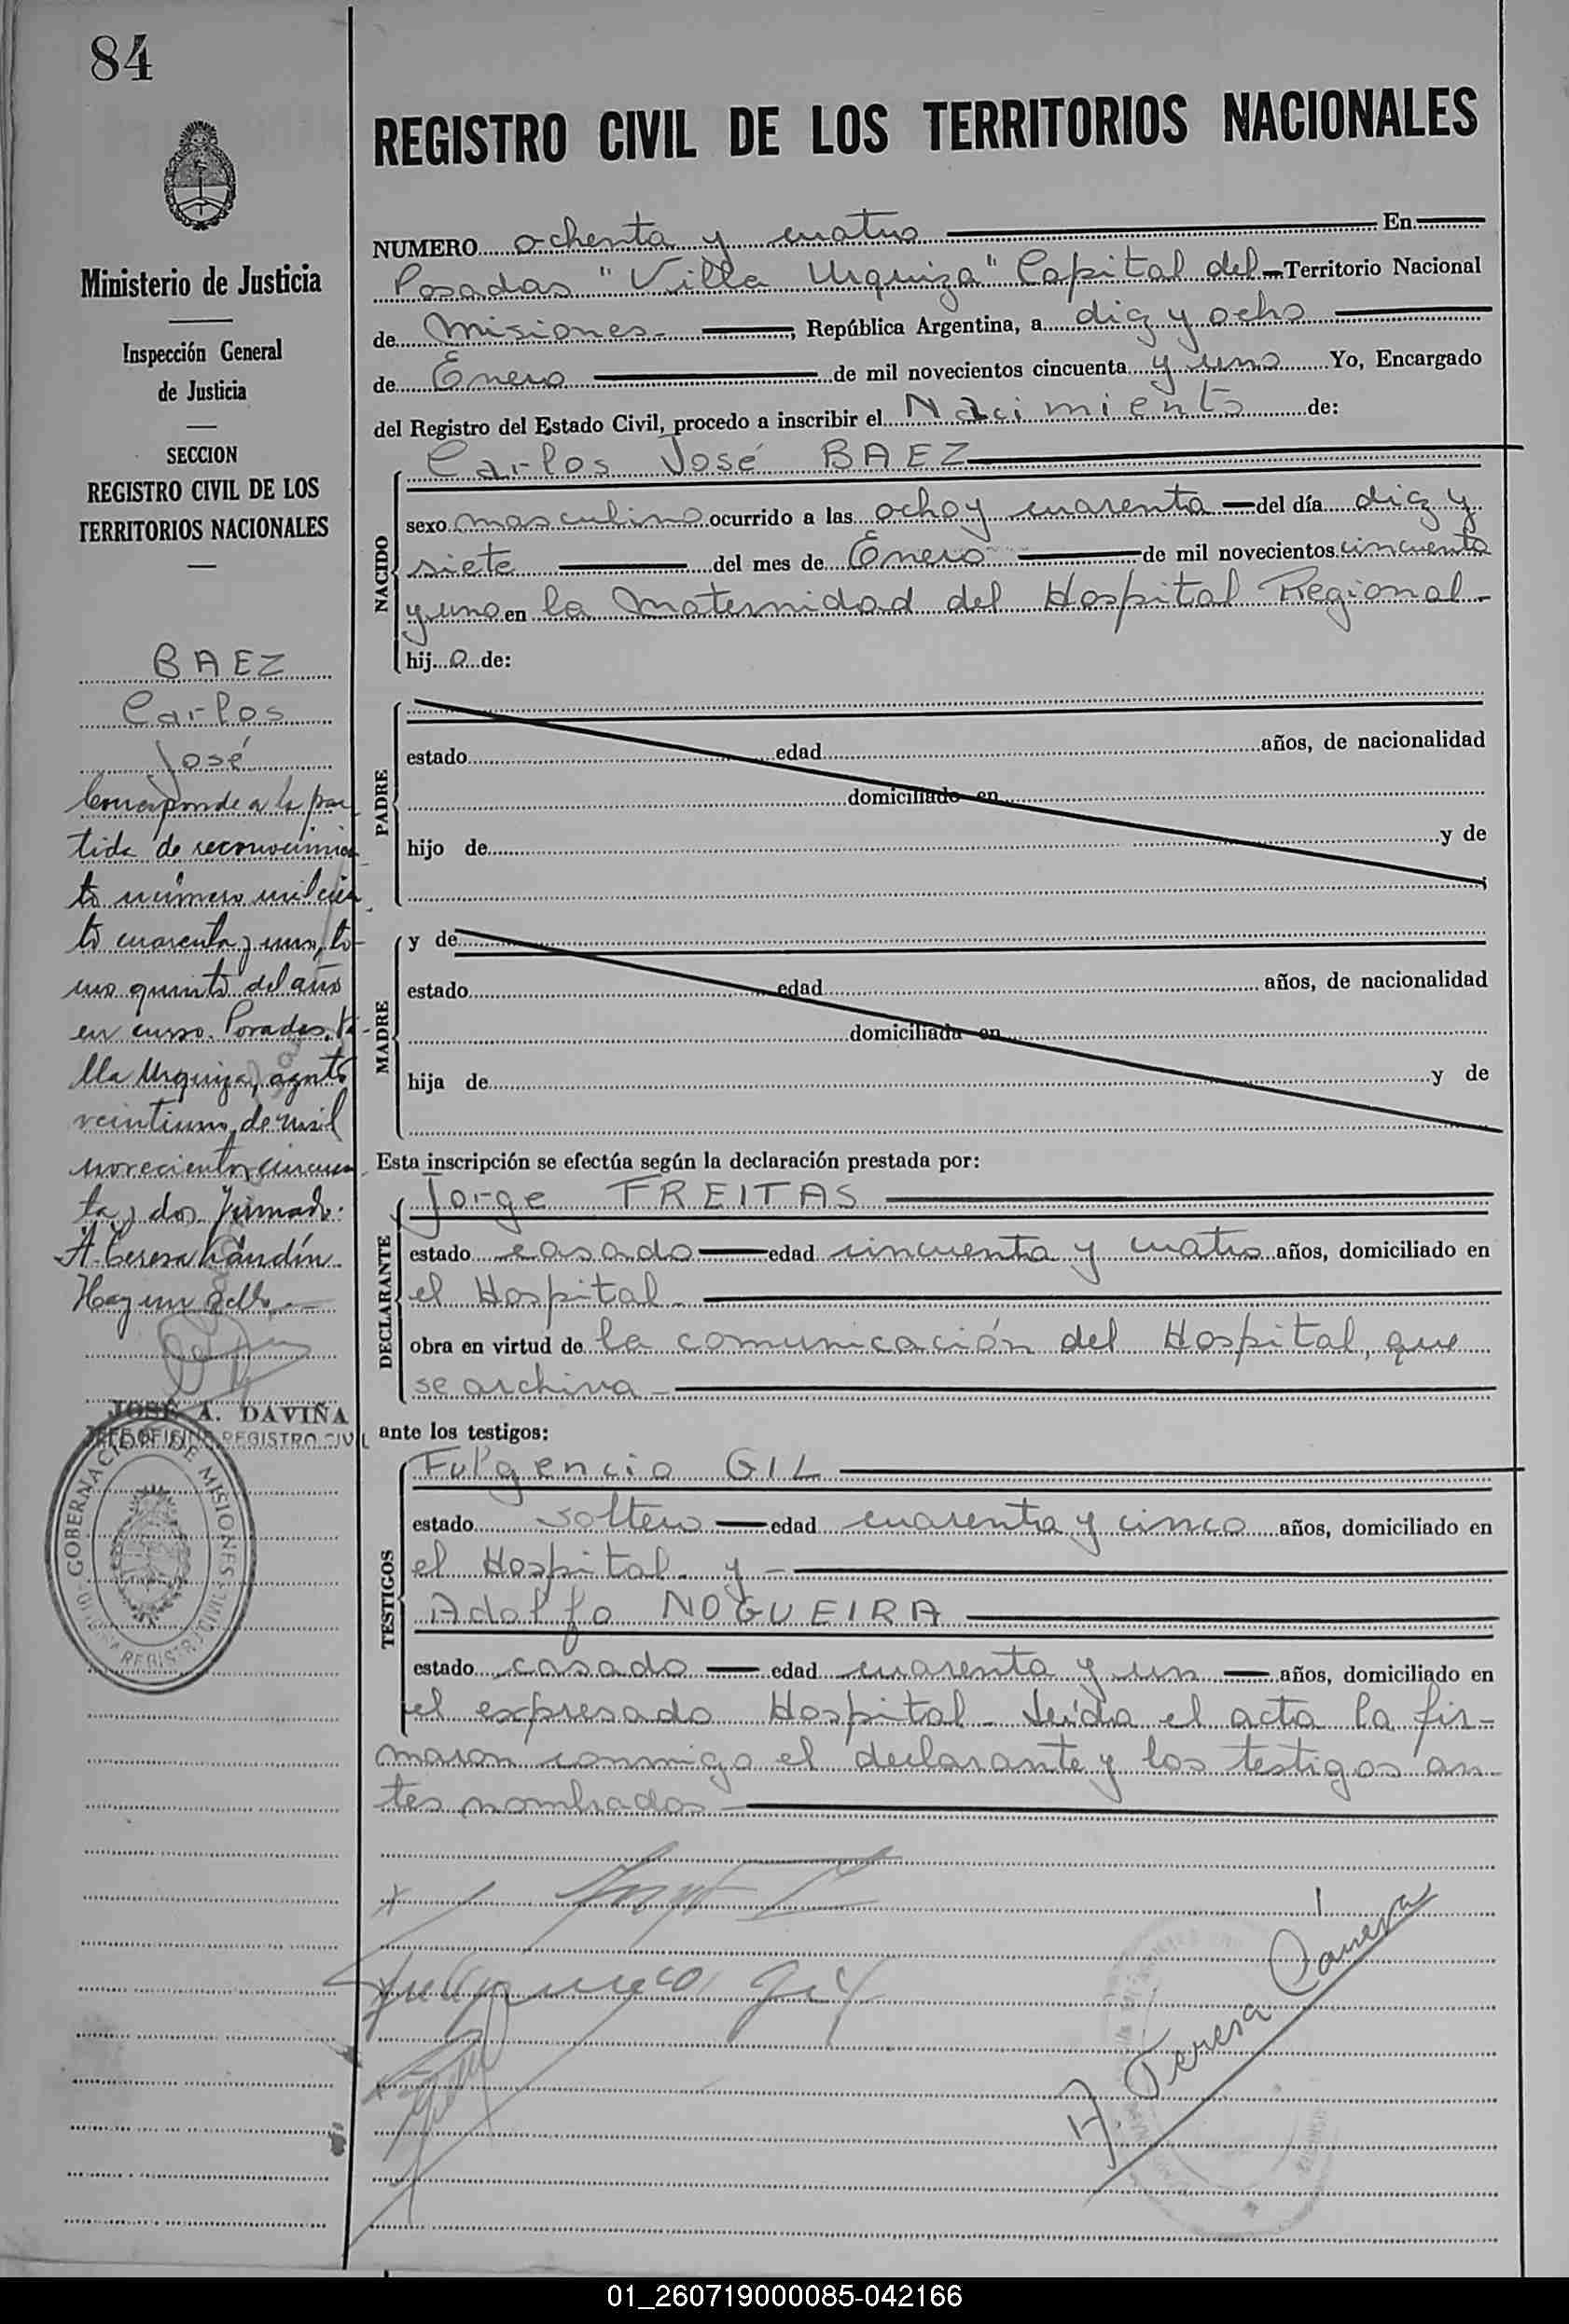 84
Ministerio de Justicia
Inspección General
de Justicia
SECCION
REGISTRO CIVIL DE LOS
TERRITORIOS NACIONALES
BAEZ
Carlos
José
Corresponde a la par
tida de reconocimien
to número mil cien
to cuarenta y uno, to-
mo quinto del año
en curso. Posadas, Vi-
lla Urquiza, agosto
veintiuno de mil
novecientos cincuen
ta y dos. Firmado:
A. Teresa
Hay un sello.
JOSÉ A. DAVIÑA
JEFE OFICINA REGISTRO CIVIL
GOBERNACION DE MISIONES
OFICINA REGISTRO CIVIL
REGISTRO CIVIL DE LOS TERRITORIOS NACIONALES
NUMERO ochenta y cuatro En
Posadas "Villa Urquiza" Capital del Territorio Nacional
de Misiones, República Argentina, a diez y ocho
de Enero de mil novecientos cincuenta y uno Yo, Encargado
del Registro del Estado Civil, procedo a inscribir el Nacimiento de:
NACIDO
Carlos José BAEZ
sexo masculino ocurrido a las ocho y cuarenta del día diez y
siete del mes de Enero de mil novecientos cincuenta
y uno en la Maternidad del Hospital Regional-
hij o de:
PADRE
estado edad años, de nacionalidad
domiciliado en
hijo de y de
MADRE
y de
estado edad años, de nacionalidad
domiciliada en
hija de y de
Esta inscripción se efectúa según la declaración prestada por:
DECLARANTE
Jorge FREITAS
estado casado edad cincuenta y cuatro años, domiciliado en
el Hospital-
obra en virtud de la comunicación del Hospital, que
se archiva-
ante los testigos:
TESTIGOS
Fulgencio GIL
estado soltero edad cuarenta y cinco años, domiciliado en
el Hospital y-
Adolfo NOGUEIRA
estado casado edad cuarenta y un años, domiciliado en
el expresado Hospital- Leída el acta la fir-
maron conmigo el declarante y los testigos an-
tes nombrados-
Fulgencio Gil
A. Teresa
01_260719000085-042166